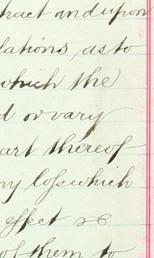 tract and upon
lations as to
which the
d or vary
art thereof
ny loss which
effect &c
of them to